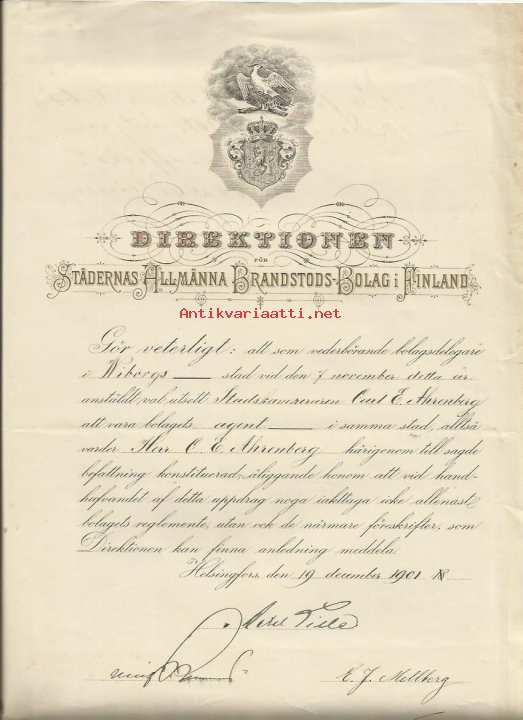 DIREKTIONEN
FÖR
STÄDERNAS ALLMÄNNA BRANDSTODS-BOLAG i FINLAND
Antikvariaatti.net
Gör veterligt: att som vederbörande bolagsdelegare
i Wiborgs stad vid den 7 november detta år
anstäldt val utsett Stadskamreraren Carl E. Ahrenberg
att vara bolagets agent i samma stad, alltså
varder Herr C. E. Ahrenberg härigenom till sagde
befattning konstituerad, åliggande honom att vid hand-
hafvandet af detta uppdrag noga iakttaga icke allenast
bolagets reglemente, utan ock de närmare föreskrifter, som
Direktionen kan finna anledning meddela.
Helsingfors, den 19 december 1901
Axel Lille
E. J. Mellberg